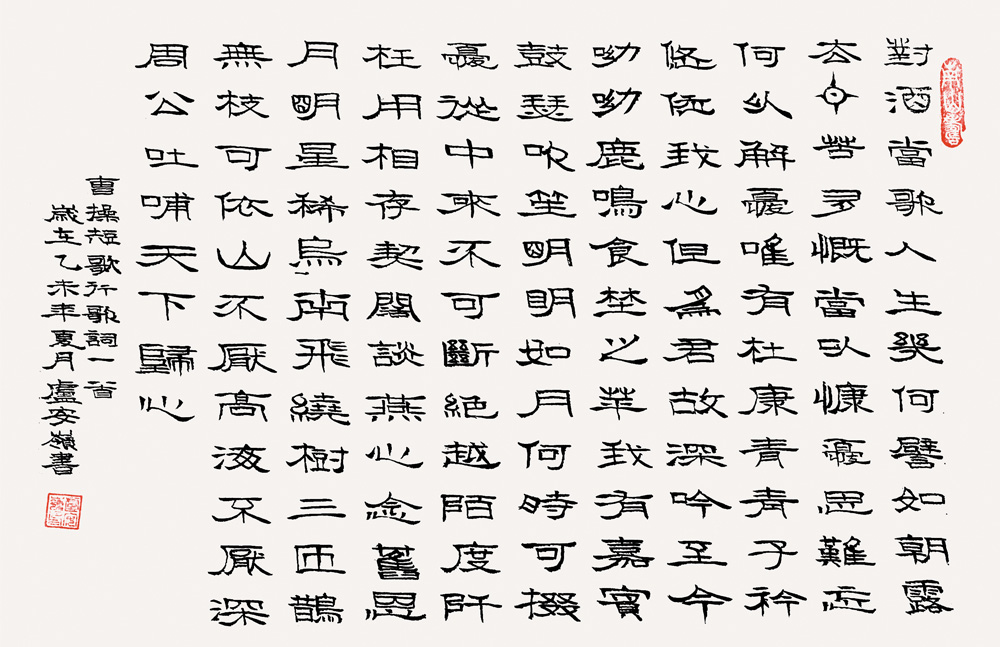 對酒當歌人生幾何譬如朝露
去日苦多慨當以慷憂思難忘
何以解憂唯有杜康青青子衿
悠悠我心但為君故深吟至今
呦呦鹿鳴食埜之苹我有嘉賓
鼓瑟吹笙明明如月何時可掇
憂從中來不可斷絕越陌度阡
枉用相存契闊談燕心念舊恩
月明星稀烏南飛繞樹三匝鵲
無枝可依山不厭高海不厭深
周公吐哺天下歸心
曹操短歌行歌詞一首
歲在乙未年夏月盧安嶺書